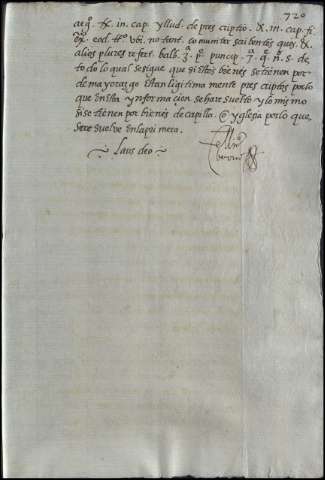 720
aeq. tx. in. cap. yllud. de pres criptio. & in. cap. fi.
ex. eod. tto. vbi. no tent. comuniter scribentes quos. &
alios plures refert. balb. 3. pe. princip. 7. q. n. 5. de
todo lo qual se sigue que si estos bienes se tienen por
de mayorazgo estan ligitima mente pres criptos por lo
que en esta ynformacion se ha re suelto y lo mismo
si se tienen por bienes de capilla. o yglesia por lo que,
se re suelve en la pri mero.
Laus deo